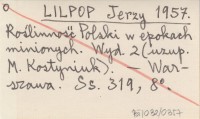 LILPOP Jerzy 1957.
Roślinność Polski w epokach
minionych. Wyd. 2 (uzup.
M. Kostyniuk). — War-
szawa. Ss. 319, 8º.